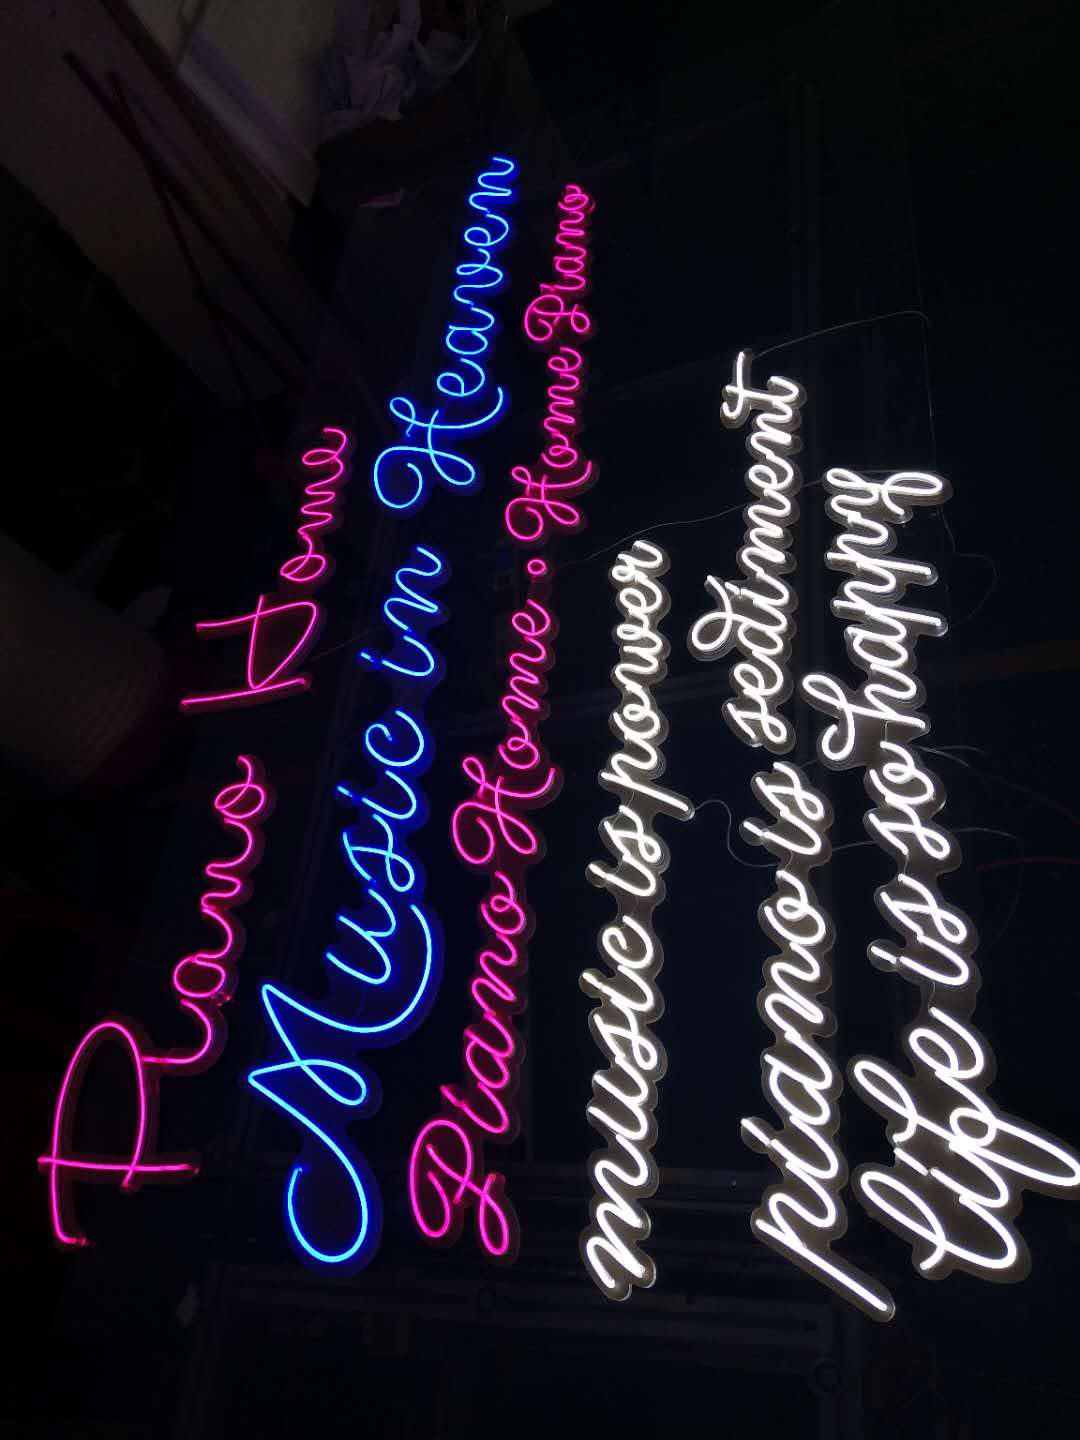 Piano Home
Music in Heaven
Piano Home . Home Piano
music is power
piano is sediment
life is so happy